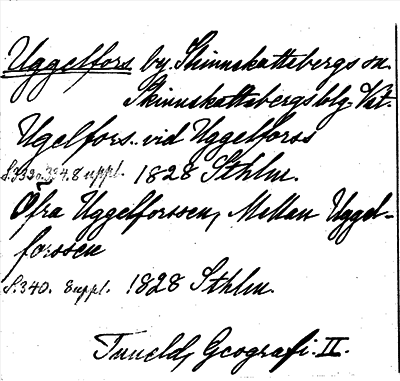 Uggelfors by. Skinnskattebergs sn.
Skinnskattebergs blg Vst.
Ugelfors.. vid Uggelforss
8 uppl. 1828 Sthlm.
Öfra Uggelforssen, Mellan Uggel-
forssen
S. 340. 8 uppl. 1828 Sthlm.
Tuneld, Geografi. II.